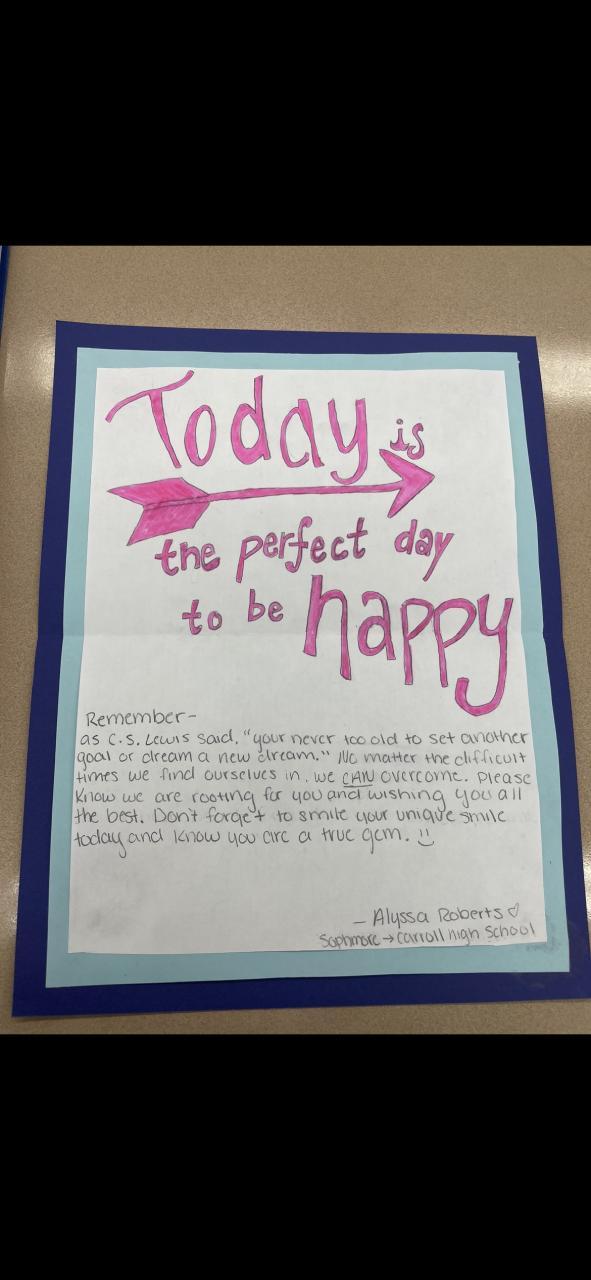 Today is
the perfect day
to be happy
Remember-
as C.S. Lewis said, "your never too old to set another
goal or dream a new dream." No matter the difficult
times we find ourselves in, we CAN overcome. Please
know we are rooting for you and wishing you all
the best. Don't forget to smile your unique smile
today and know you are a true gem. :)
- Alyssa Roberts ♡
Sophmore → Carroll high School